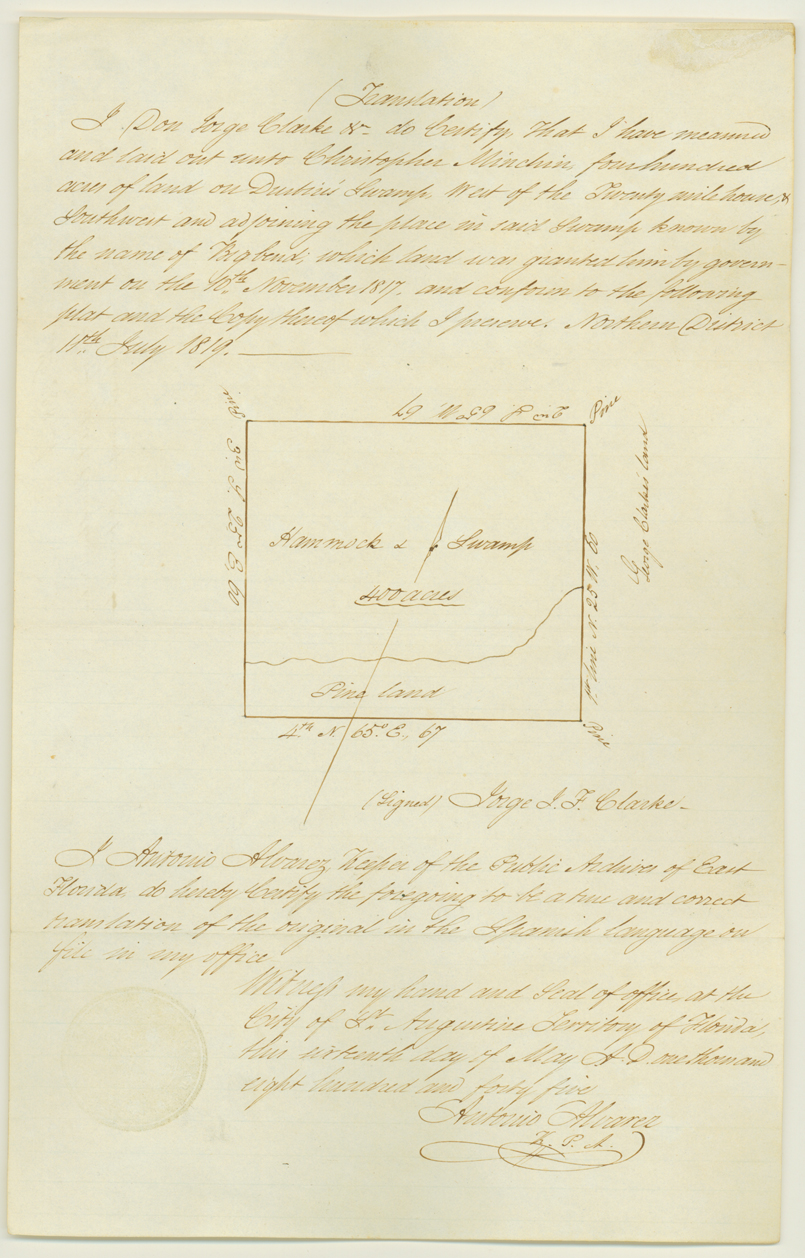 (Translation)
I Don Jorge Clarke &c. do Certify, That I have measured
and laid out unto Christopher Minchin, four hundred
acres of land on Durbin's Swamp, West of the Twenty mile house, &
Southwest and adjoining the place in said Swamp known by
the name of Bigbend; which land was granted him by govern-
ment on the November 1817. and conform to the following
plat and the Copy thereof which I preserve. Northern District
11th July 1819.
Pine
2nd S. 65° W. 67
Pine
3rd S. 25° E, 60
George Clarke's land
Hammock & Swamp
400 acres
1st line N. 25 W. 60
Pine land
Pine
4th N. 65° E., 67
(Signed) Jorge J. F. Clarke
I Antonio Alvarez, Keeper of the Public Archives of East
Florida, do hereby Certify the foregoing to be a true and correct
translation of the original in the Spanish language on
file in my office
Witness my hand and Seal of office, at the
City of St. Augustine Territory of Florida,
this sixteenth day of May A. D. one thousand
eight hundred and forty five
Antonio Alvarez
K. P. A.